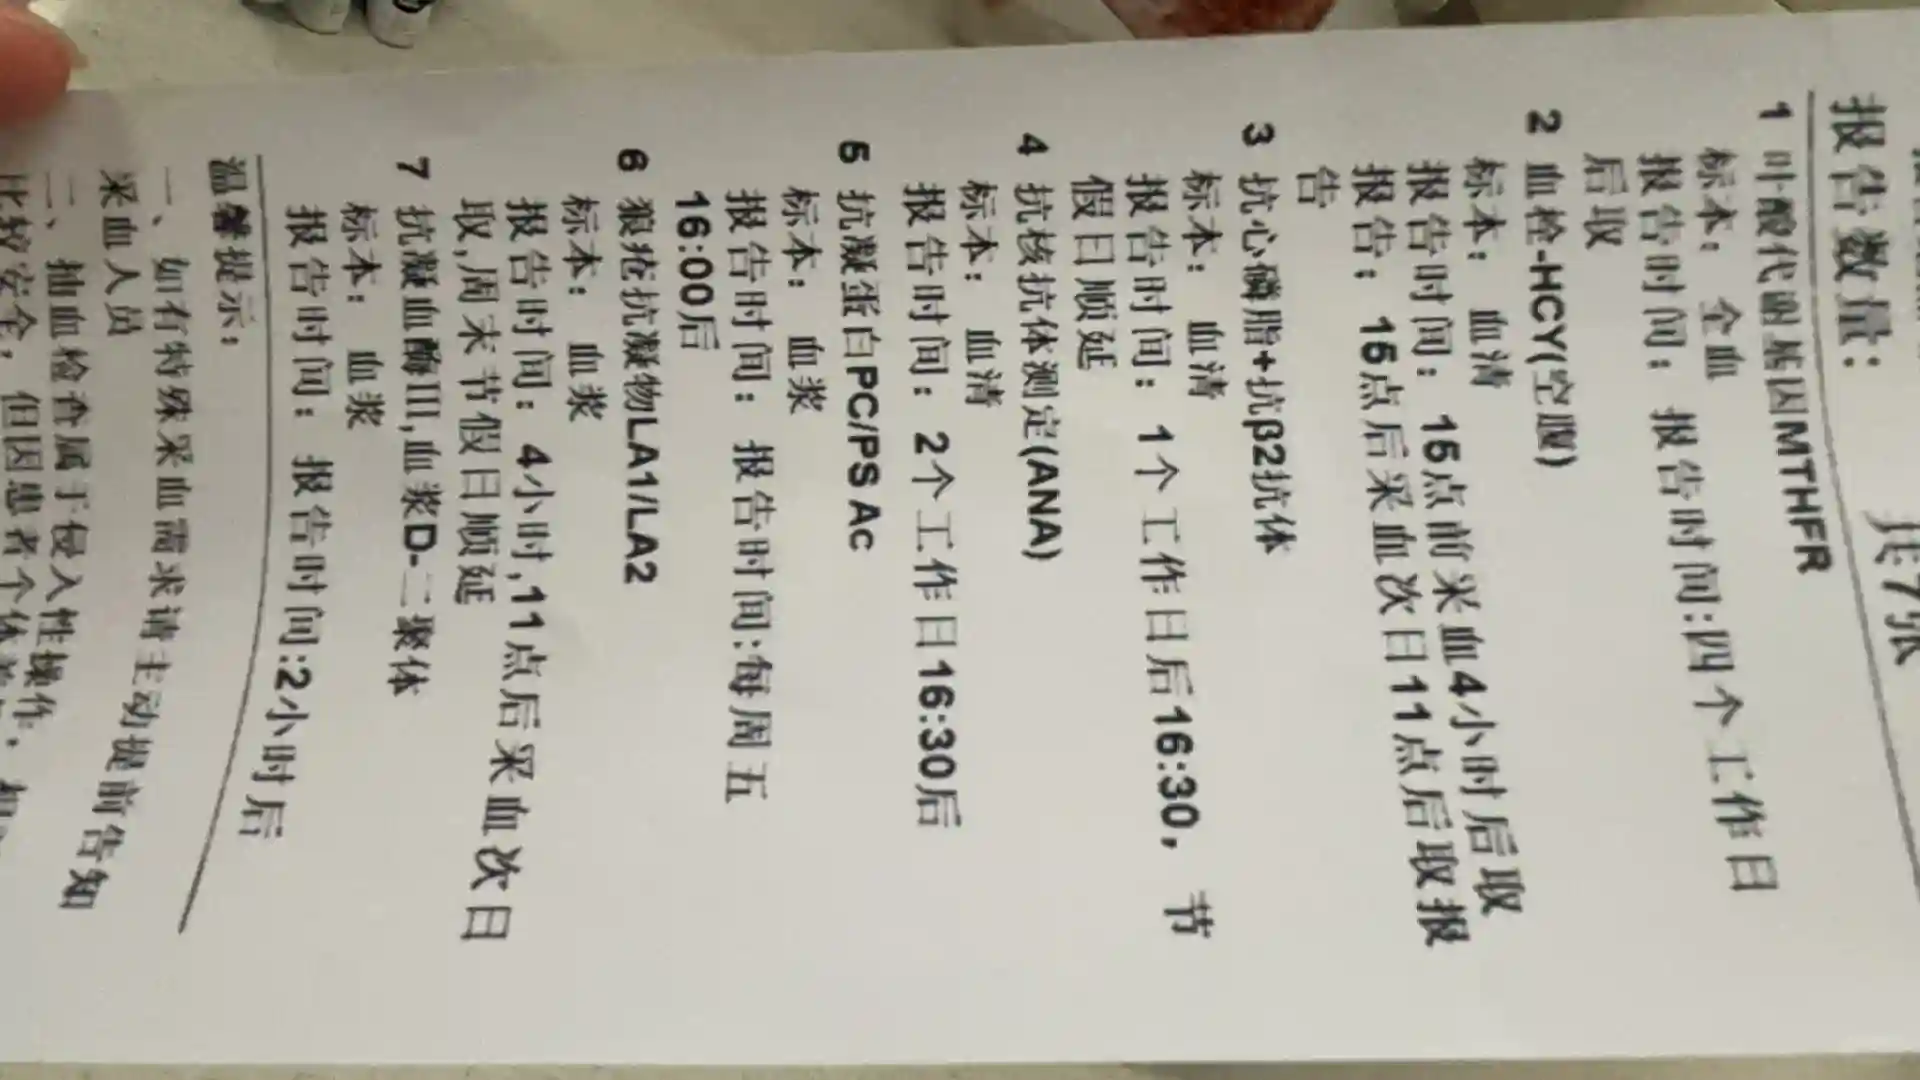 报告数量： 共7张
1 叶酸代谢基因MTHFR
标本： 全血
报告时间： 报告时间:四个工作日
后取
2 血栓-HCY(空腹)
标本： 血清
报告时间： 15点前采血4小时后取
报告； 15点后采血次日11点后取报
告
3 抗心磷脂+抗β2抗体
标本： 血清
报告时间： 1个工作日后16:30， 节
假日顺延
4 抗核抗体测定(ANA)
标本： 血清
报告时间： 2个工作日16:30后
5 抗凝蛋白PC/PS Ac
标本： 血浆
报告时间： 报告时间:每周五
16:00后
6 狼疮抗凝物LA1/LA2
标本： 血浆
报告时间： 4小时,11点后采血次日
取,周末节假日顺延
7 抗凝血酶III,血浆D-二聚体
标本： 血浆
报告时间： 报告时间:2小时后
温馨提示：
一、如有特殊采血需求请主动提前告知
采血人员
二、抽血检查属于侵入性操作，
比较安全，但因患者个体